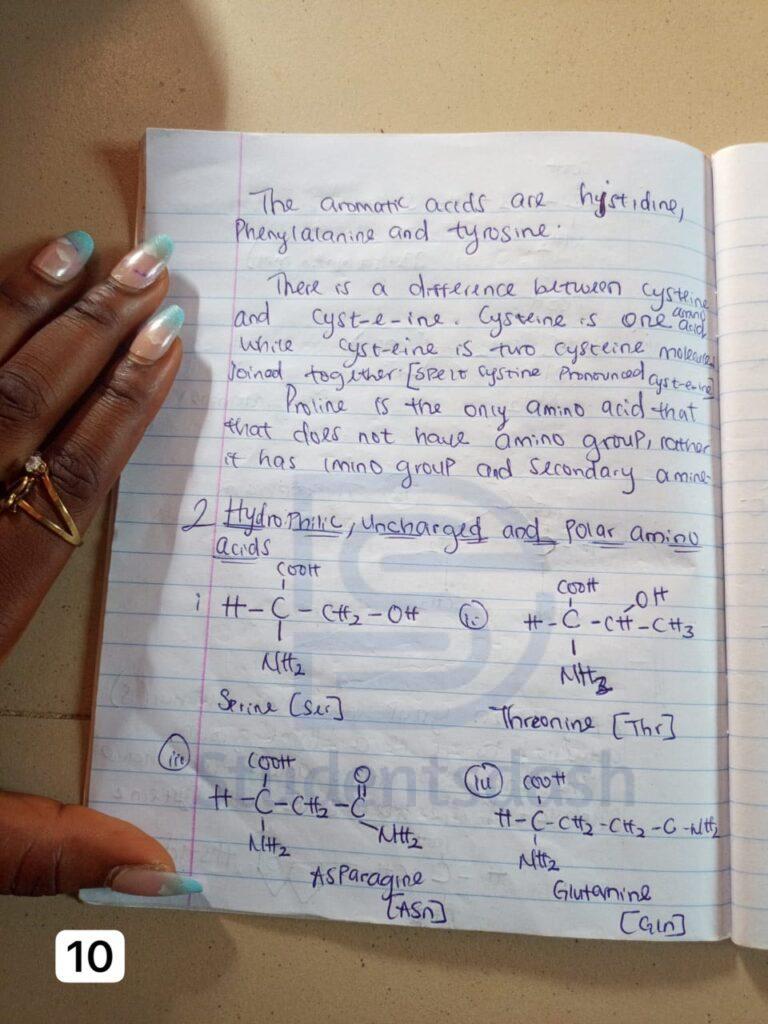 The aromatic acids are hystidine,
Phenylalanine and tyrosine.
There is a difference between cysteine
and cyst-e-ine. Cysteine is one amino acid
while cyst-eine is two cysteine molecules
Joined together. [Spelt cystine pronounced cyst-e-ine]
Proline is the only amino acid that
that does not have amino group, rather
it has imino group and secondary amine.
2 Hydrophilic, uncharged and polar amino
acids
i
COOH
H-C-CH2-OH
NH2
Serine [Ser]
ii
COOH OH
H-C-CH-CH3
NH2
Threonine [Thr]
iii
COOH O
H-C-CH2-C
NH2 NH2
Asparagine
[ASn]
iu
COOH
H-C-CH2-CH2-C-NH2
NH2
Glutamine
[Gln]
Studentsdash
10